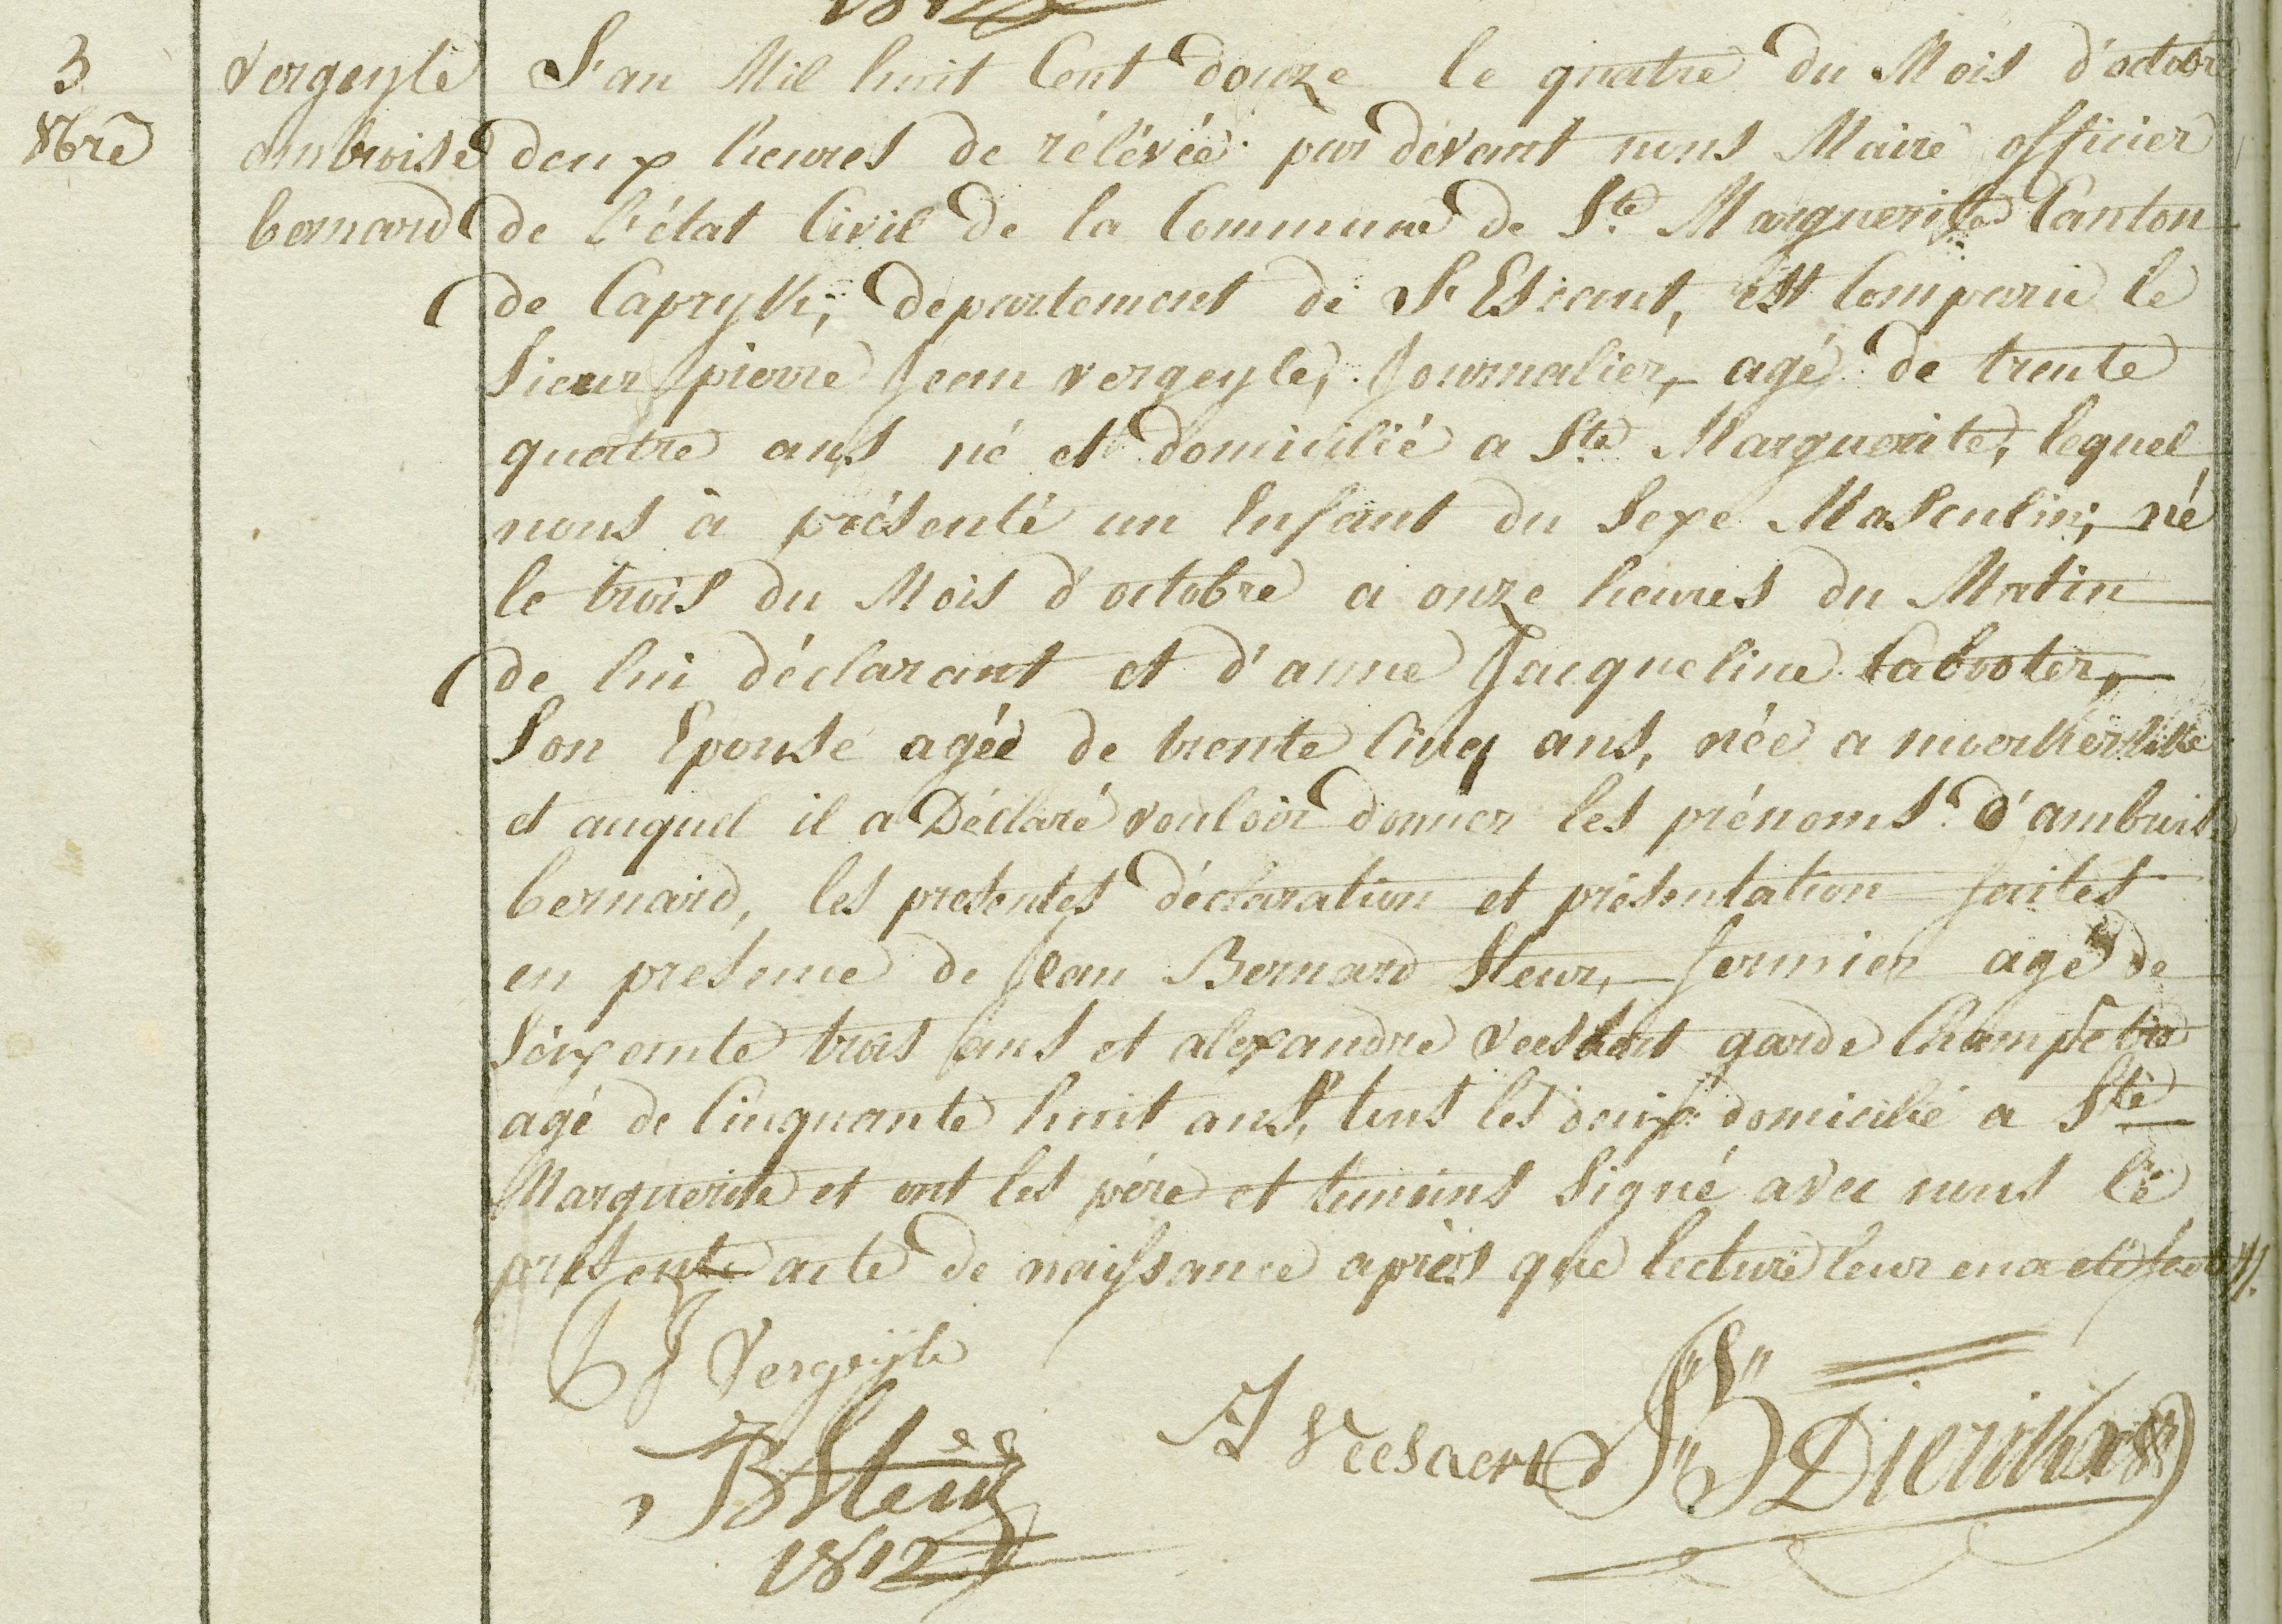 3
8bre
vergeyle
ambroise
bernard
L'an Mil huit Cent douze le quatre du Mois d'octobre
deux heures de rélévée par devant nous Maire officier
de l'état Civil de la Commune de Ste Marguerite Canton
de Capryk, departement de l'Escaut, est Comparu le
Sieur pierre Jean vergeyle, Journalier, agé de trente
quatre ans né et domicilié a Ste Marguerite, lequel
nous à présenté un Enfant du Sexe Masculin, né
le trois du Mois d'octobre a onze heures du Matin
de lui déclarant et d'anne Jacqueline Cabooter,
Son Epouse agée de trente Cinq ans, née a moerkerke
et auquel il a Déclaré vouloir donner les prénoms d'ambrois
bernard, les presentes déclaration et présentation faites
en presence de Jean Bernard Steur, fermier agé de
Soixente trois ans et alexandre veesaert garde Champetre
agé de Cinquante huit ans, tous les deux domicilié a Ste
Marguerite et ont les pére et temoins Signé avec nous le
presente acte de naissance après que lecture leur en a eté faite
P J Vergeyle
JB Steur
1812
A Veesaert
Dierikx